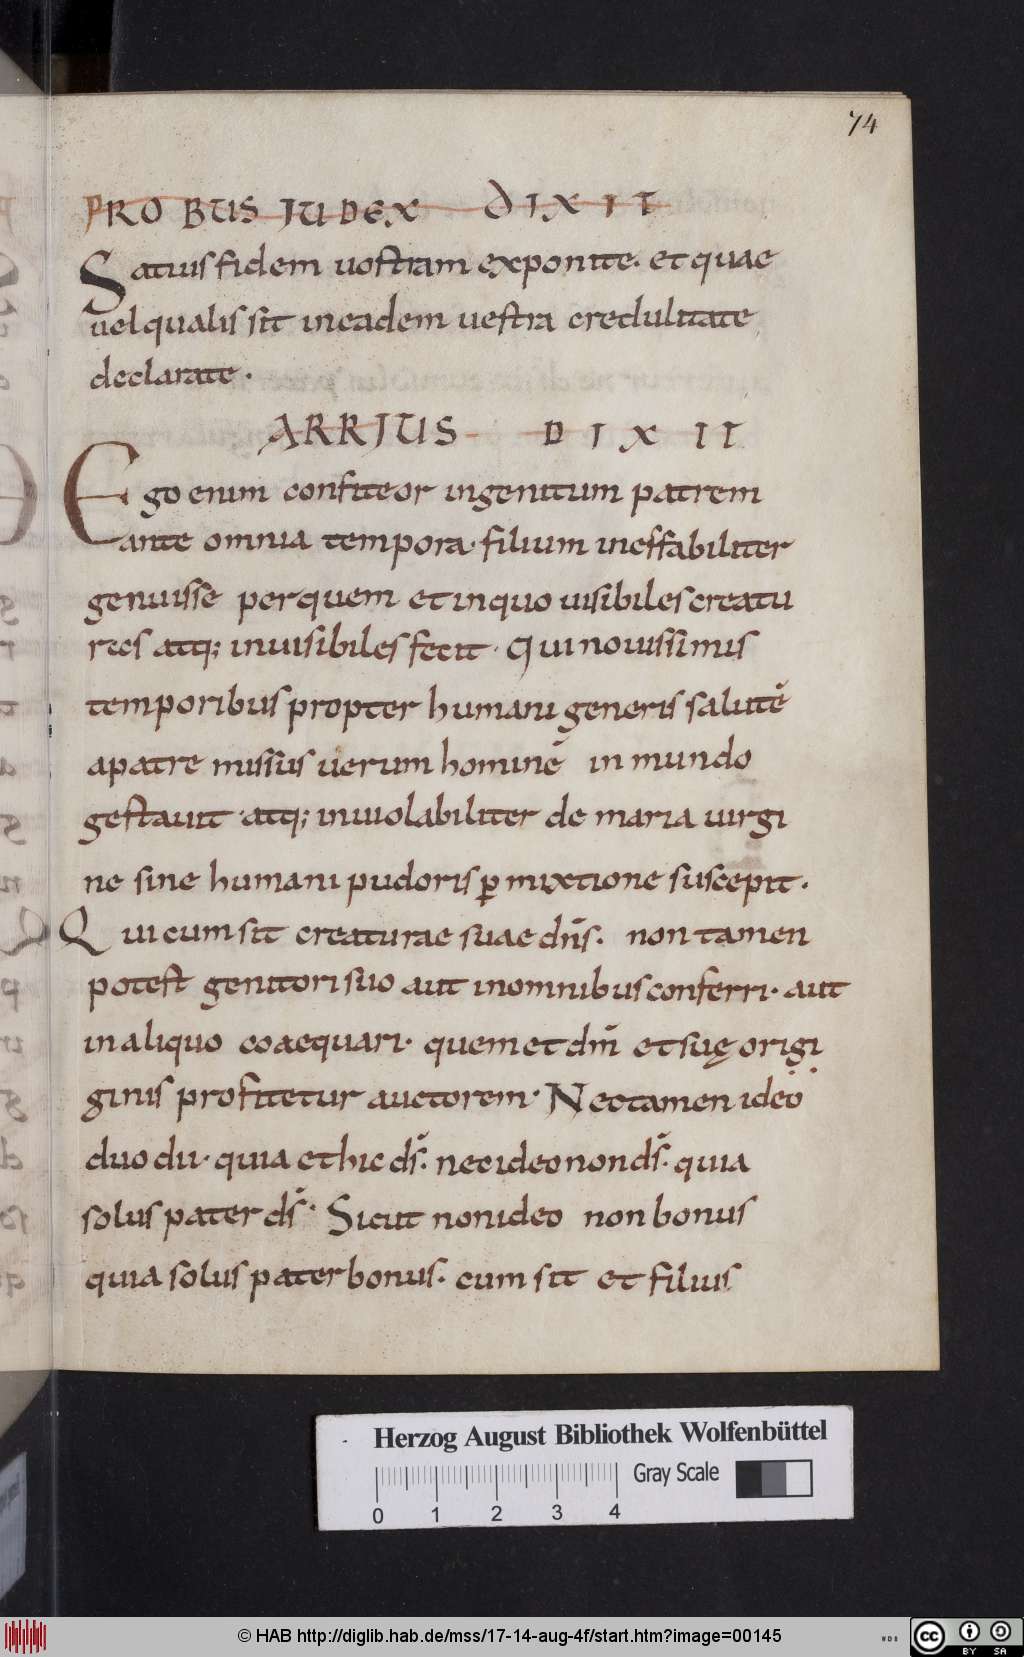 74
PROBUS JUDEX DIXIT
Satius fidem uostram exponite. et quae
uel qualis sit in eadem uestra credulitate
declarate.
ARRIUS DIXIT
Ego enim confiteor ingenitum patrem
ante omnia tempora. filium ineffabiliter
genuisse per quem et in quo uisibiles creatu
res atq; inuisibiles fecit. Qui nouissimis
temporibus propter humani generis salutē
a patre missus uerum hominē in mundo
gestauit. atq; inuiolabiliter de maria uirgi
ne sine humani pudoris ꝑmixtione suscepit.
Qui cum sit creaturae suae dn̄s. non tamen
potest genitori suo aut in omnibus conferri. aut
in aliquo coaequari. quem et dm̄ et suę origi
ginis profitetur auctorem. Nec tamen ideo
duo dii. quia et hic ds̄. nec ideo non ds̄. quia
solus pater ds̄. Sicut non ideo non bonus
quia solus pater bonus. cum sit et filius
Herzog August Bibliothek Wolfenbüttel
Gray Scale
0 1 2 3 4
© HAB http://diglib.hab.de/mss/17-14-aug-4f/start.htm?image=00145
cc BY SA